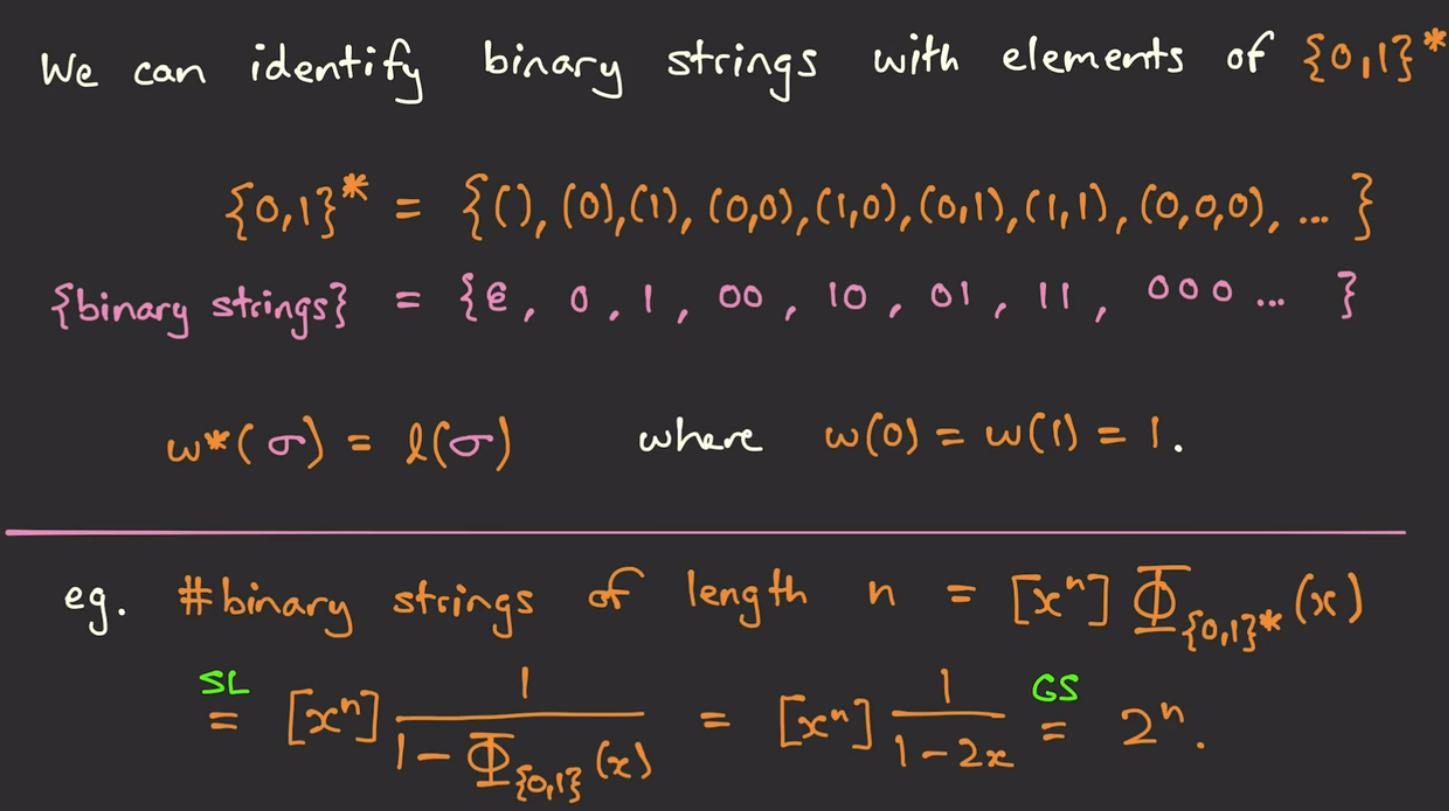 We can identify binary strings with elements of {0,1}*
{0,1}* = {(), (0),(1), (0,0),(1,0),(0,1),(1,1), (0,0,0), ... }
{binary strings} = {ε, 0, 1, 00, 10, 01, 11, 000 ... }
w*(σ) = l(σ) where w(0) = w(1) = 1.
eg. #binary strings of length n = [xⁿ] Φ_{0,1}* (x)
SL = [xⁿ] 1 / (1 - Φ_{0,1} (x)) = [xⁿ] 1 / (1 - 2x) GS = 2ⁿ.